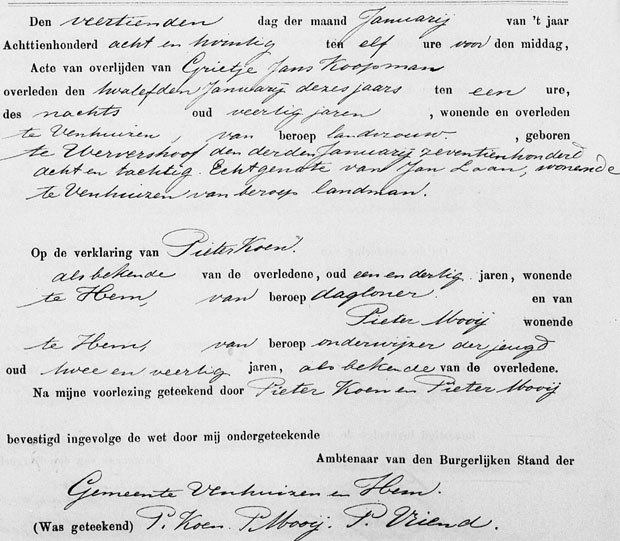 Den veertienden dag der maand Januarij van 't jaar
Achttienhonderd acht en twintig ten elf ure voor den middag,
Acte van overlijden van Grietje Jans Koopman
overleden den twalefden Januarij dezes jaars ten een ure,
des nachts oud veertig jaren , wonende en overleden
te Venhuizen, van beroep landvrouw , geboren
te Wervershoof den derden Januarij zeventienhonderd
acht en tachtig. Echtgenote van Jan Laan, wonende
te Venhuizen van beroep landman.
Op de verklaring van Pieter Koen
als bekende van de overledene, oud een en dertig jaren, wonende
te Hem, van beroep dagloner en van
Pieter Mooij wonende
te Hem, van beroep onderwijzer der jeugd
oud twee en veertig jaren, als bekende van de overledene.
Na mijne voorlezing geteekend door Pieter Koen en Pieter Mooij
bevestigd ingevolge de wet door mij ondergeteekende
Ambtenaar van den Burgerlijken Stand der
Gemeente Venhuizen en Hem.
(Was geteekend) P. Koen. P. Mooij. P. Vriend.